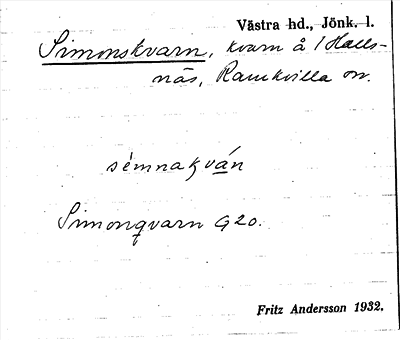 Västra hd., Jönk. l.
Simonskvarn, kvarn å 1 Halls-
näs, Ramkvilla sn.
sémnakván
Simonqvarn G20.
Fritz Andersson 1932.